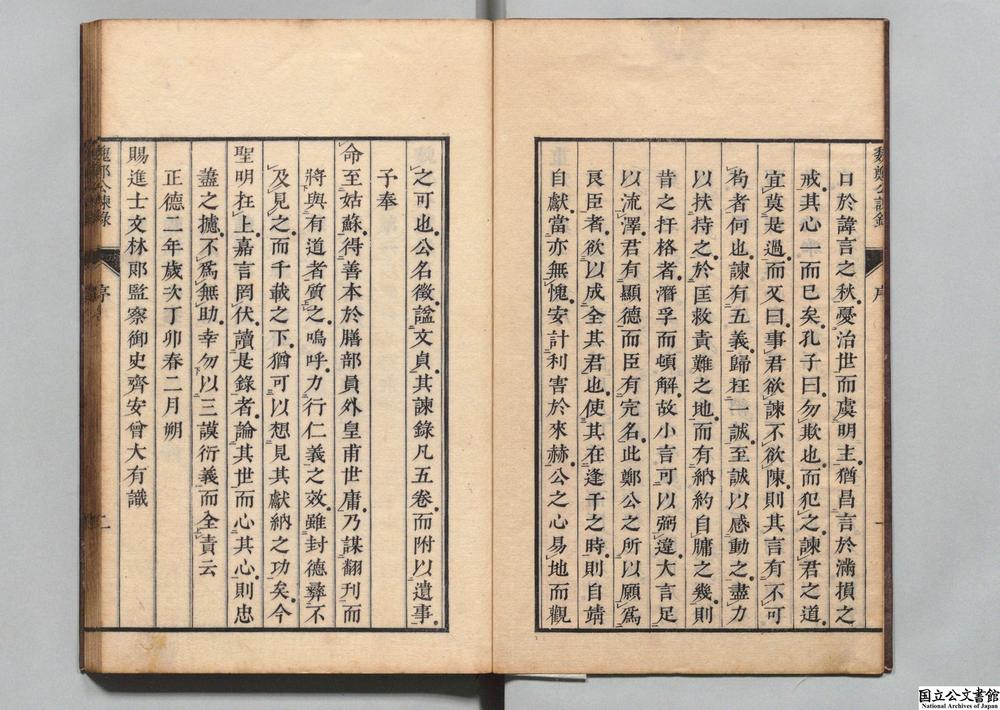 魏鄭公諫錄
序
一
口於諱言之秋憂治世而虞明主猶昌言於滿損之
戒其心一而已矣孔子曰勿欺也而犯之諫君之道
宜莫是過而又曰事君欲諫不欲陳則其言有不可
苟者何也諫有五義歸在一誠至誠以感動之盡力
以扶持之於匡救責難之地而有納約自牖之幾則
昔之扞格者潛孚而頓解故小言可以弼違大言足
以流澤君有顯德而臣有完名此鄭公之所以願爲
良臣者欲以成全其君也使其在逢干之時則自靖
自獻當亦無愧安計利害於來赫公之心易地而觀
之可也公名徵諡文貞其諫錄凡五卷而附以遺事
予奉
命至姑蘇得善本於膳部員外皇甫世庸乃謀翻刊而
將與有道者質之嗚呼力行仁義之效雖封德彝不
及見之而千載之下猶可以想見其獻納之功矣今
聖明在上嘉言罔伏讀是錄者論其世而心其心則忠
藎之攄不爲無助幸勿以三謨衍義而全責云
正德二年歲次丁卯春二月朔
賜進士文林郎監察御史齊安曾大有識
魏鄭公諫錄
序
二
国立公文書館
National Archives of Japan